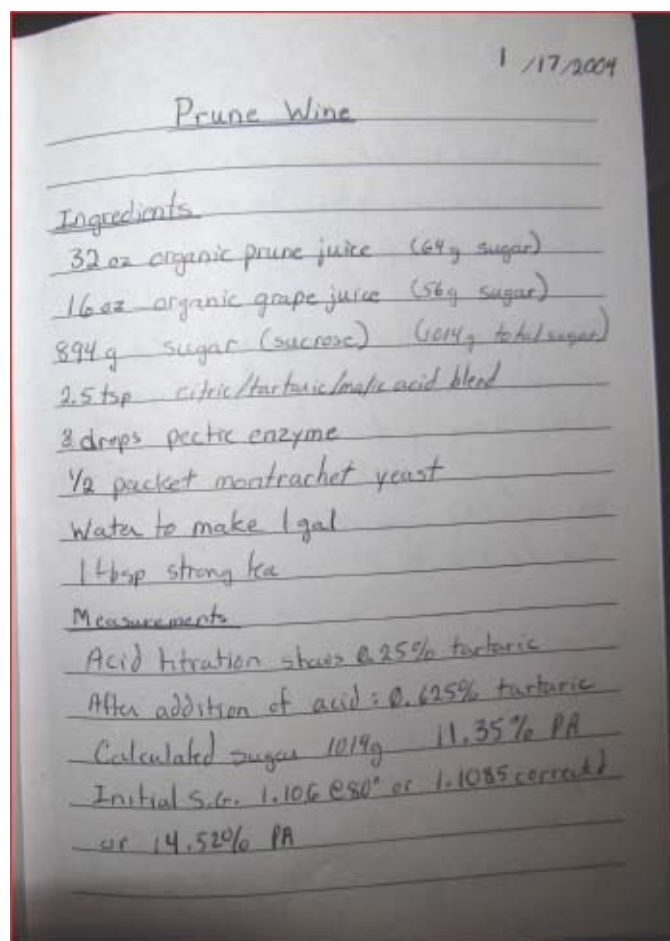 1/17/2004
Prune Wine
Ingredients
32 oz organic prune juice (64g sugar)
16 oz organic grape juice (56g sugar)
894 g sugar (sucrose) (1014g total sugar)
2.5 tsp citric/tartaric/malic acid blend
3 drops pectic enzyme
1/2 packet montrachet yeast
Water to make 1 gal
1 tbsp strong tea
Measurements
Acid titration shows 0.25% tartaric
After addition of acid: 0.625% tartaric
Calculated sugar 1014g 11.35% PA
Initial S.G. 1.106 @80° or 1.1085 corrected
or 14.52% PA